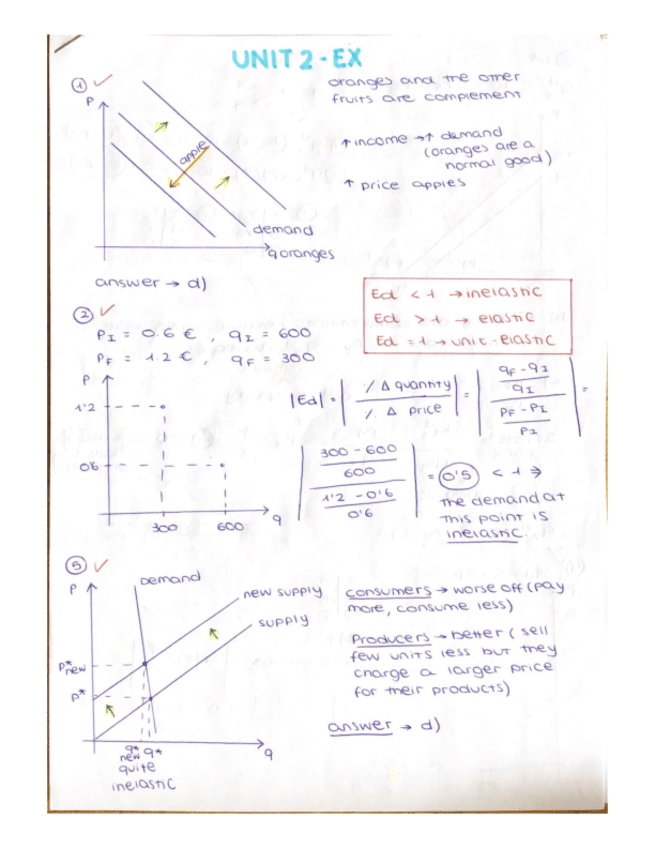 UNIT 2 - EX
① ✓
oranges and the other
fruits are complement
P
↑ income → ↑ demand
(oranges are a
normal good)
↑ price apples
apple
demand
q oranges
answer → d)
Ed < 1 → inelastic
Ed > 1 → elastic
Ed = 1 → unit-elastic
② ✓
PI = 0.6 €, qI = 600
PF = 1.2 €, qF = 300
P
1'2
0'6
300 600 q
|Ed| = | % Δ quantity / % Δ price | = | ((qF - qI) / qI) / ((PF - PI) / PI) | =
| ((300 - 600) / 600) / ((1'2 - 0'6) / 0'6) | = 0'5 < 1 ⇒
the demand at
this point is
inelastic
⑤ ✓
P
Demand
new supply
supply
P* new
P*
q* new q*
q
quite
inelastic
consumers → worse off (pay
more, consume less)
Producers → better (sell
few units less but they
charge a larger price
for their products)
answer → d)